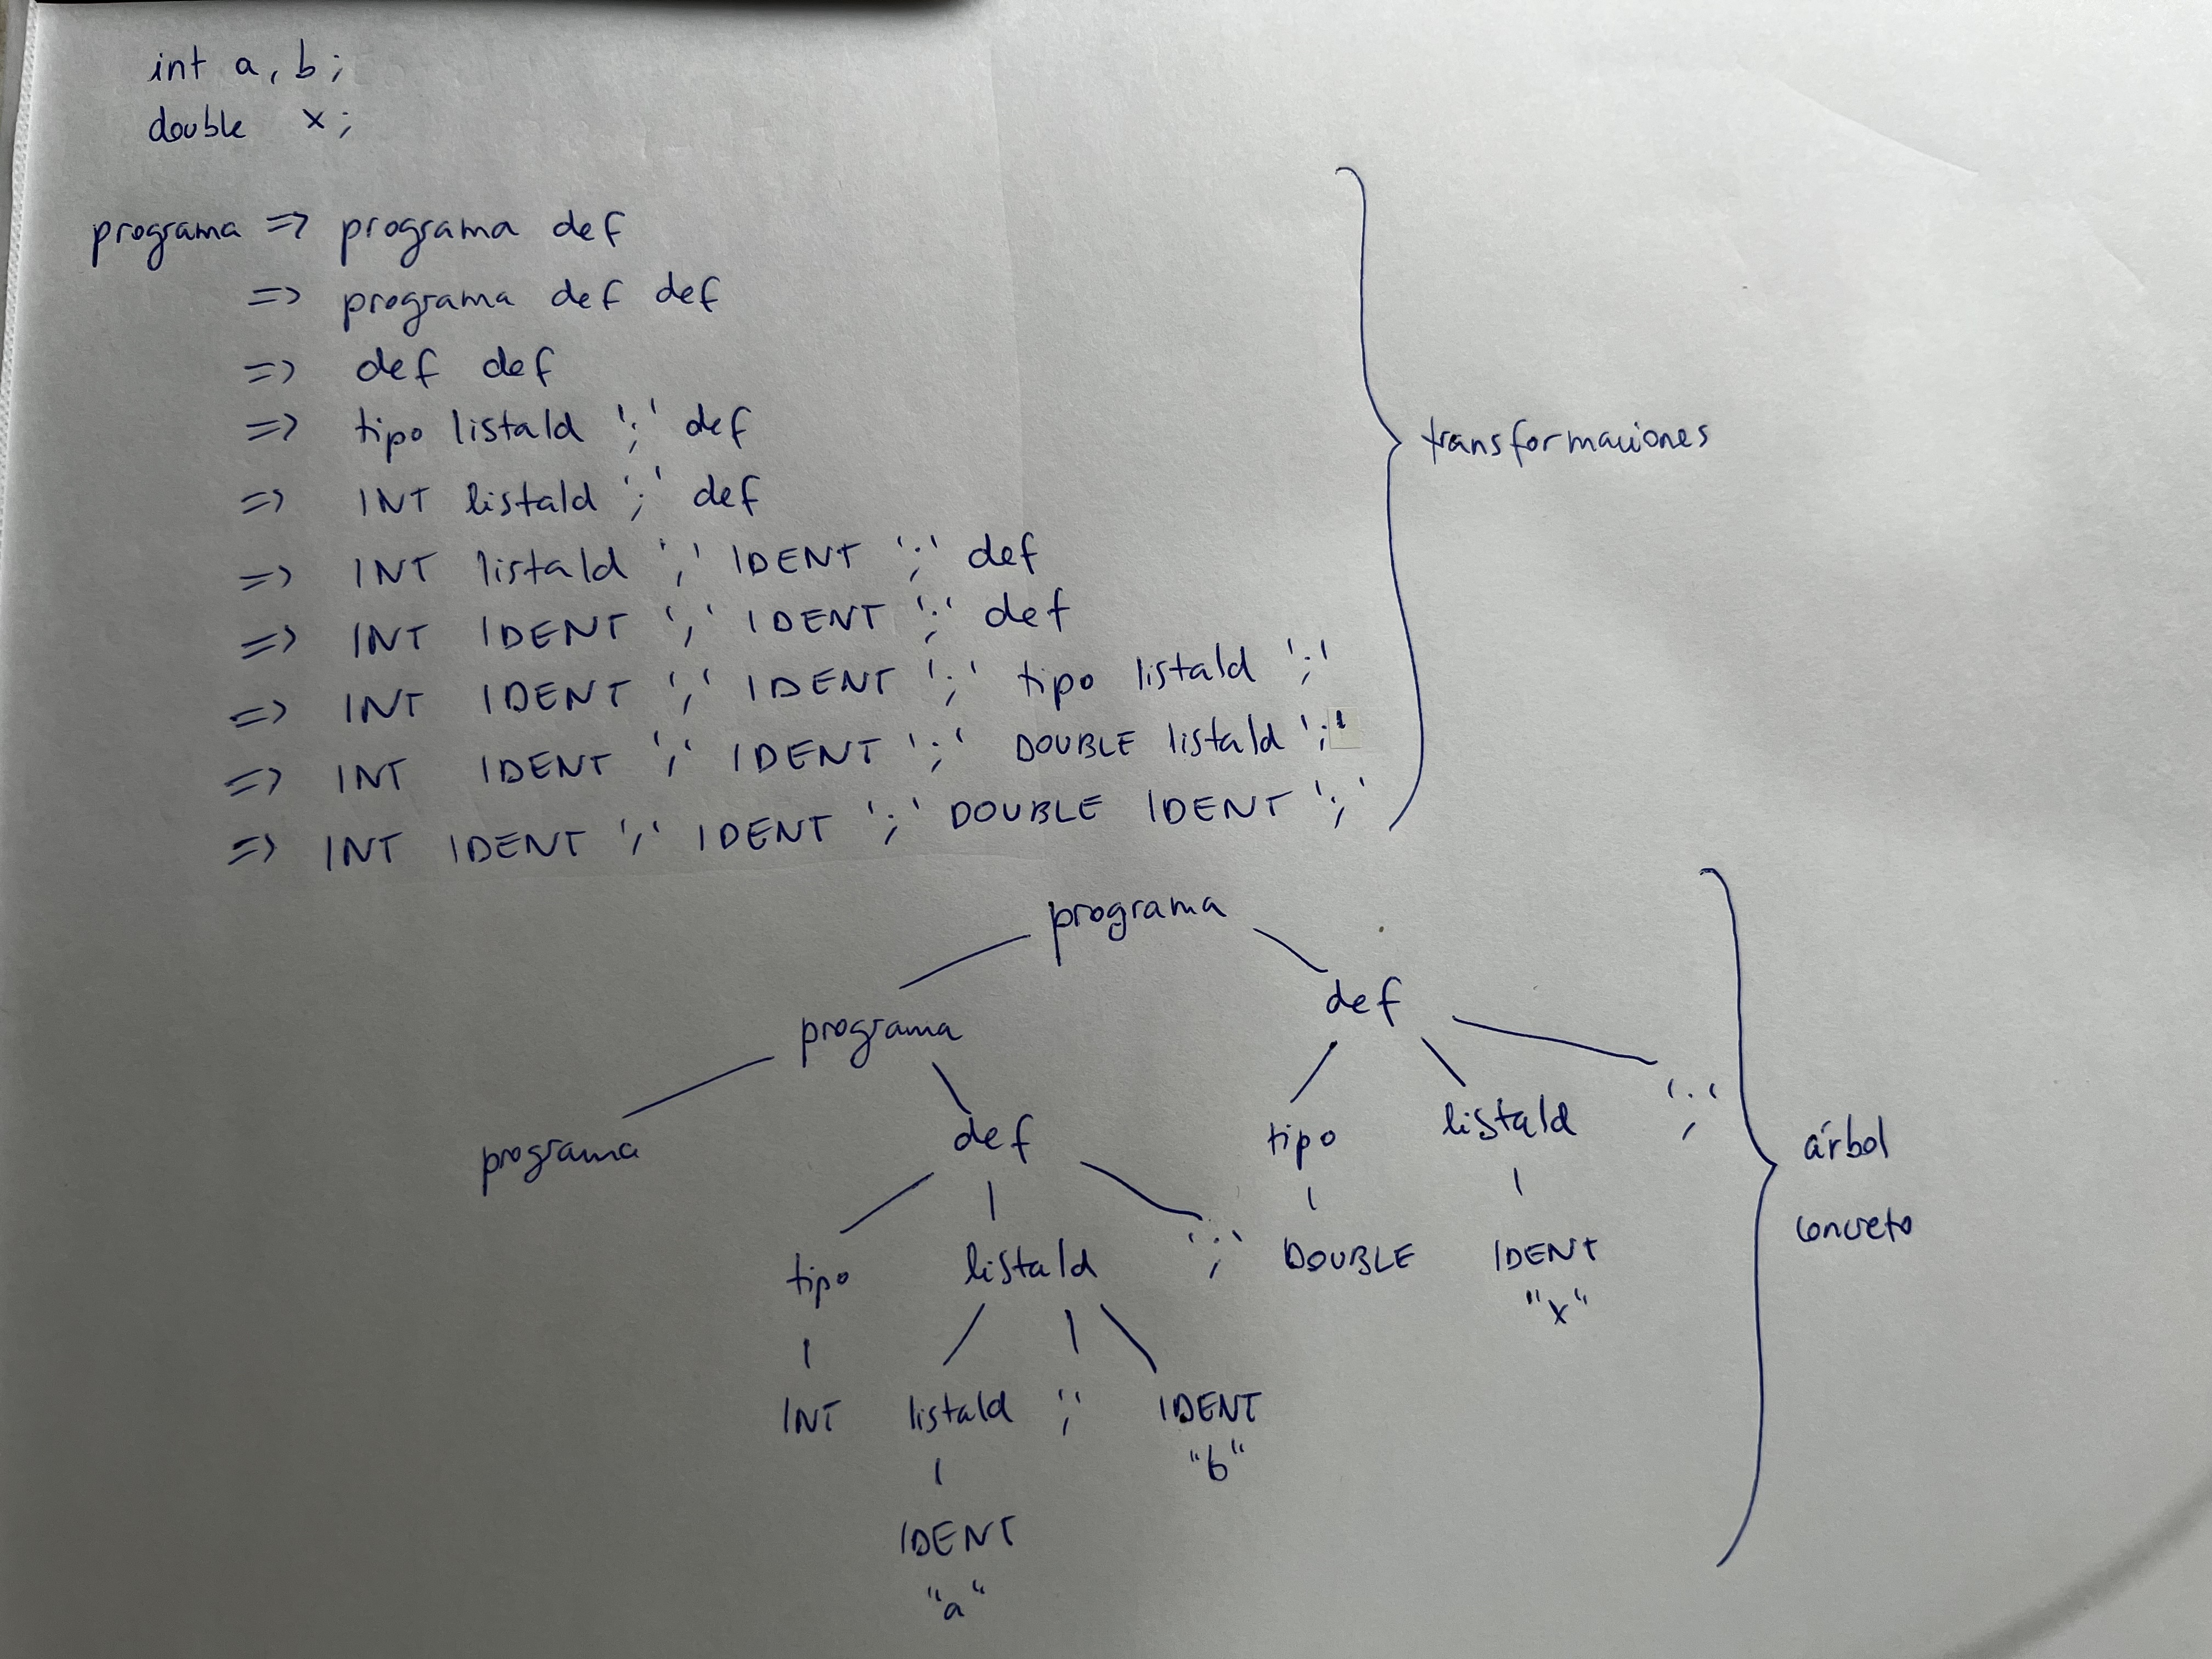 int a, b;
double x;
programa => programa def
=> programa def def
=> def def
=> tipo listaId ';' def
=> INT listaId ';' def
=> INT listaId ',' IDENT ';' def
=> INT IDENT ',' IDENT ';' def
=> INT IDENT ',' IDENT ';' tipo listaId ';'
=> INT IDENT ',' IDENT ';' DOUBLE listaId ';'
=> INT IDENT ',' IDENT ';' DOUBLE IDENT ';'
transformaciones
programa
programa def
programa def tipo listaId ';'
tipo listaId ';' DOUBLE IDENT
"x"
INT listaId ',' IDENT
"b"
IDENT
"a"
árbol
concreto